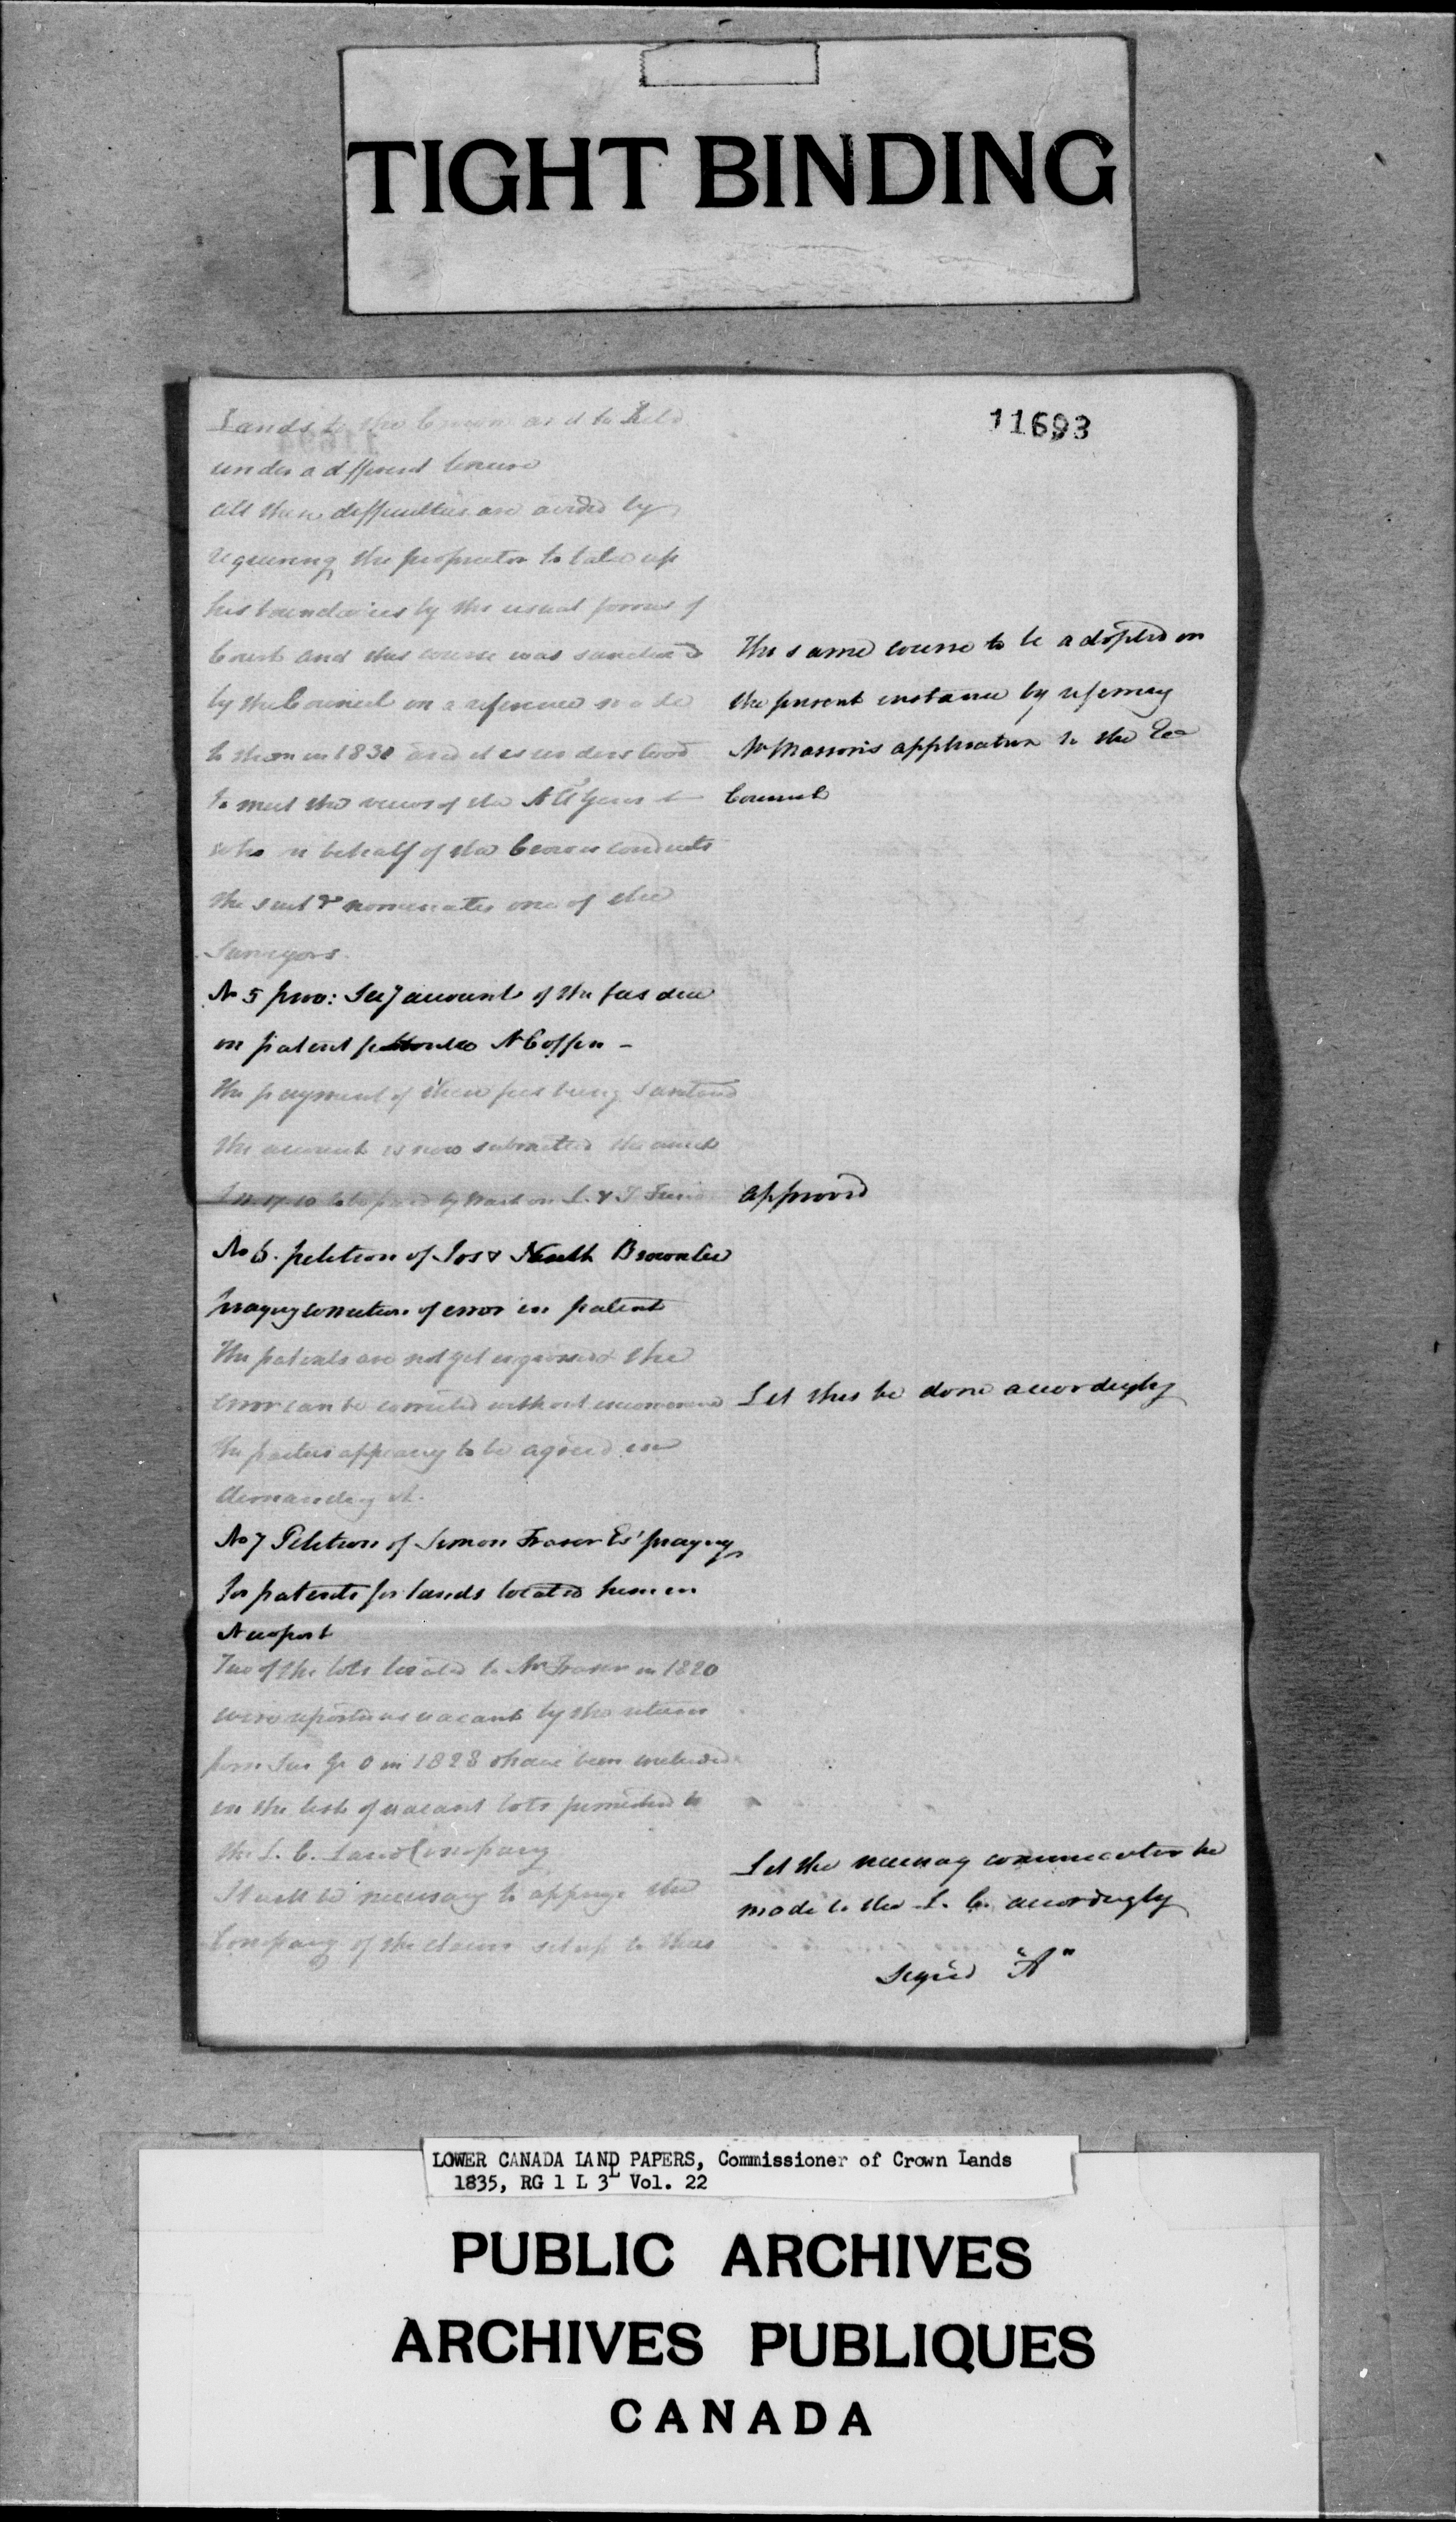 TIGHT BINDING
11693
Lands to the Crown and to held
under a different tenure
all these difficulties are avoided by
requiring the proprietor to take up
his boundaries by the usual forms of
Court and this course was sanctioned
by the Council on a reference made
to them in 1830 and it is understood
to meet the views of the Att Genl
who in behalf of the Crown conducts
the suit & nominates one of the
Surveyors.
The same course to be adopted in
the present instance by referring
Mr Masson's application to the Ex
Council
No 5 prov: Secy account of the fees due
on patent N Coffin -
The payment of these fees being
the account is now submitted the amt
to be paid by Wart on L. & T. Fund
approved
No 6. petition of Jos & Brownlee
praying correction of error in patent
The patents are not yet engrossed & the
error can be corrected without
the parties appearing to be agreed in
demanding it.
Let this be done accordingly
No 7 Petition of Simon Fraser Esr praying
for patents for lands located him in
Newport
Two of the lots located to Mr Fraser in 1820
were reported as vacant by the return
from Sur Gl O in 1828 & have been included
in the list of vacant lots furnished to
the L. C. Land Company
It will be necessary to apprize the
Company of the claim set up to these
Let the necessary communication be
made to the L. C. accordingly
signed "A"
LOWER CANADA LAND PAPERS, Commissioner of Crown Lands
1835, RG 1 L 3L Vol. 22
PUBLIC ARCHIVES
ARCHIVES PUBLIQUES
CANADA